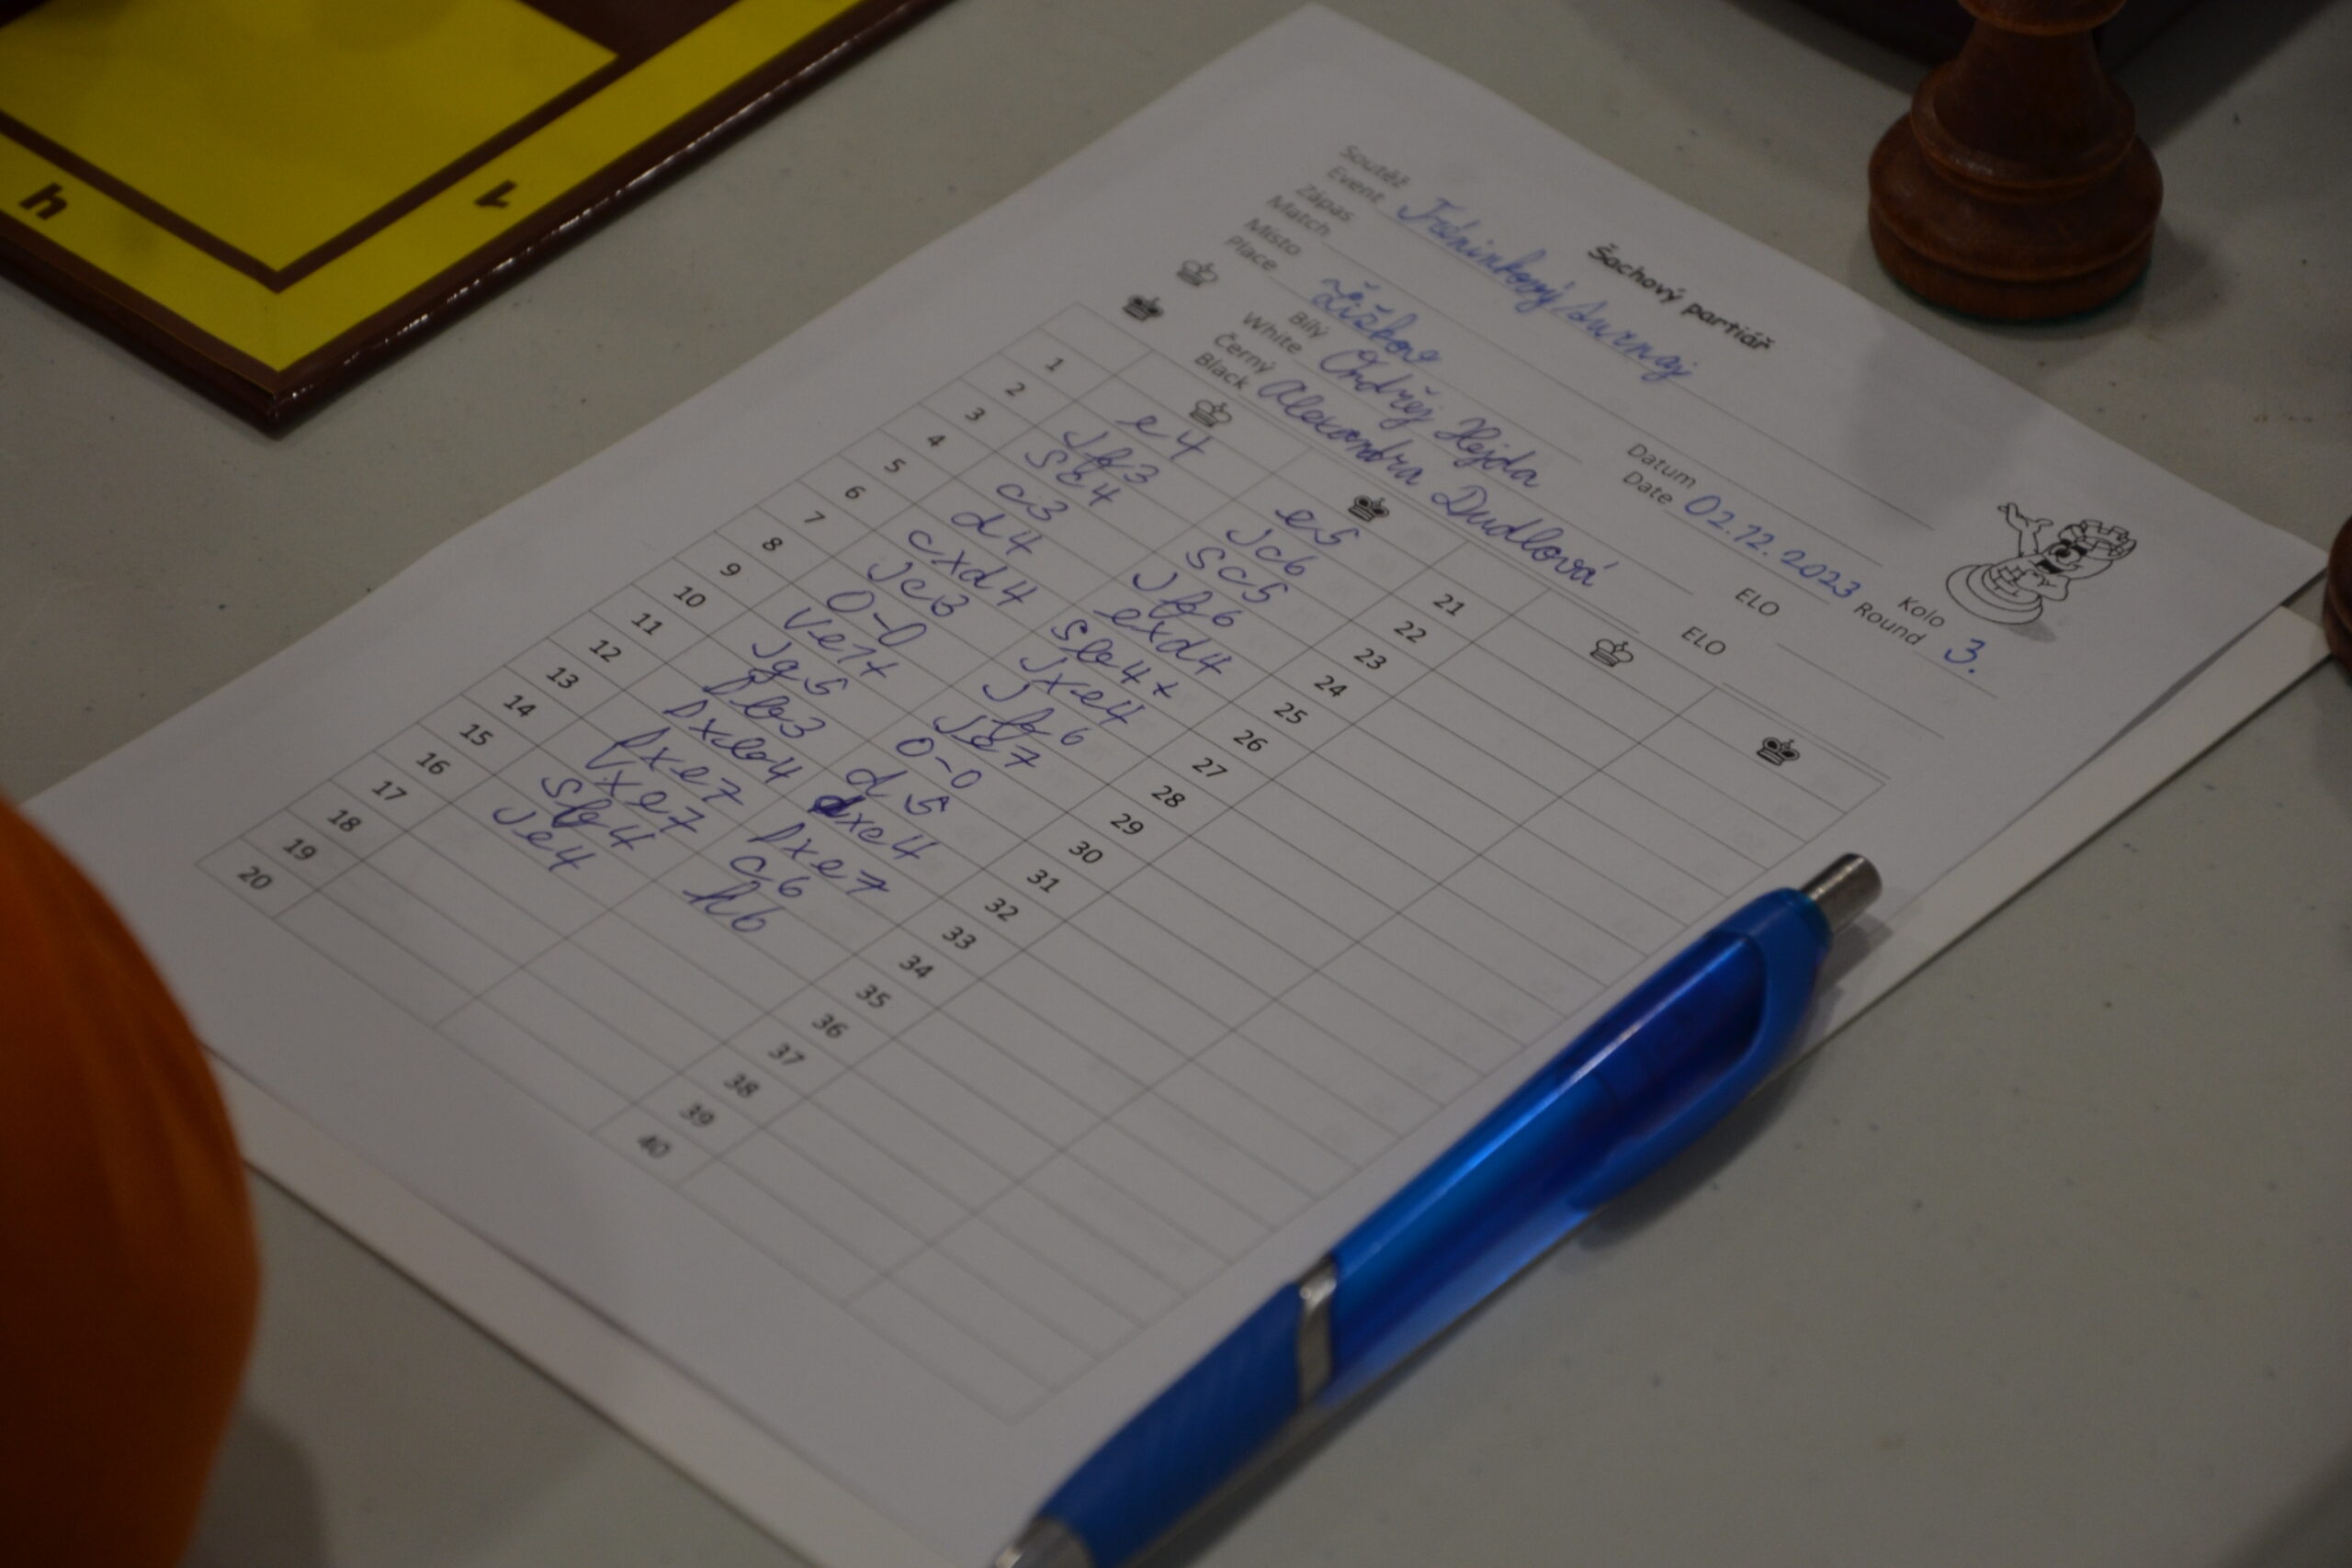 Šachový partiář
Soutěž
Event Tréninkový turnaj
Zápas
Match
Místo
Place Žižkov
Datum
Date 02.12.2023
Kolo
Round 3.
Bílý
White Ondřej Hejda
ELO
Černý
Black Alexandra Dudlová
ELO
1 e4 e5 21
2 Jf3 Jc6 22
3 Sc4 Sc5 23
4 c3 Jf6 24
5 d4 exd4 25
6 cxd4 Sb4+ 26
7 Jc3 Jxe4 27
8 0-0 Jf6 28
9 Ve1+ Je7 29
10 Jg5 0-0 30
11 Db3 d5 31
12 Dxb4 dxe4 32
13 Dxe7 Dxe7 33
14 Vxe7 c6 34
15 Sf4 h6 35
16 Je4 36
17 37
18 38
19 39
20 40
h
1